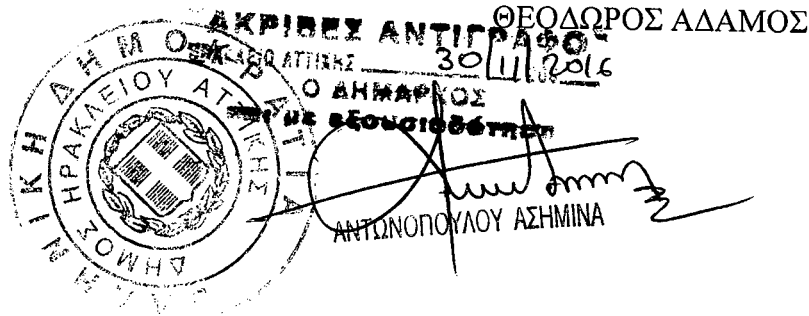 ΘΕΟΔΩΡΟΣ ΑΔΑΜΟΣ
ΑΚΡΙΒΕΣ ΑΝΤΙΓΡΑΦΟ
ΗΡΑΚΛΕΙΟ ΑΤΤΙΚΗΣ 30/11/2016
Ο ΔΗΜΑΡΧΟΣ
και με εξουσιοδότηση
ΑΝΤΩΝΟΠΟΥΛΟΥ ΑΣΗΜΙΝΑ
ΕΛΛΗΝΙΚΗ ΔΗΜΟΚΡΑΤΙΑ
ΔΗΜΟΣ ΗΡΑΚΛΕΙΟΥ ΑΤΤΙΚΗΣ